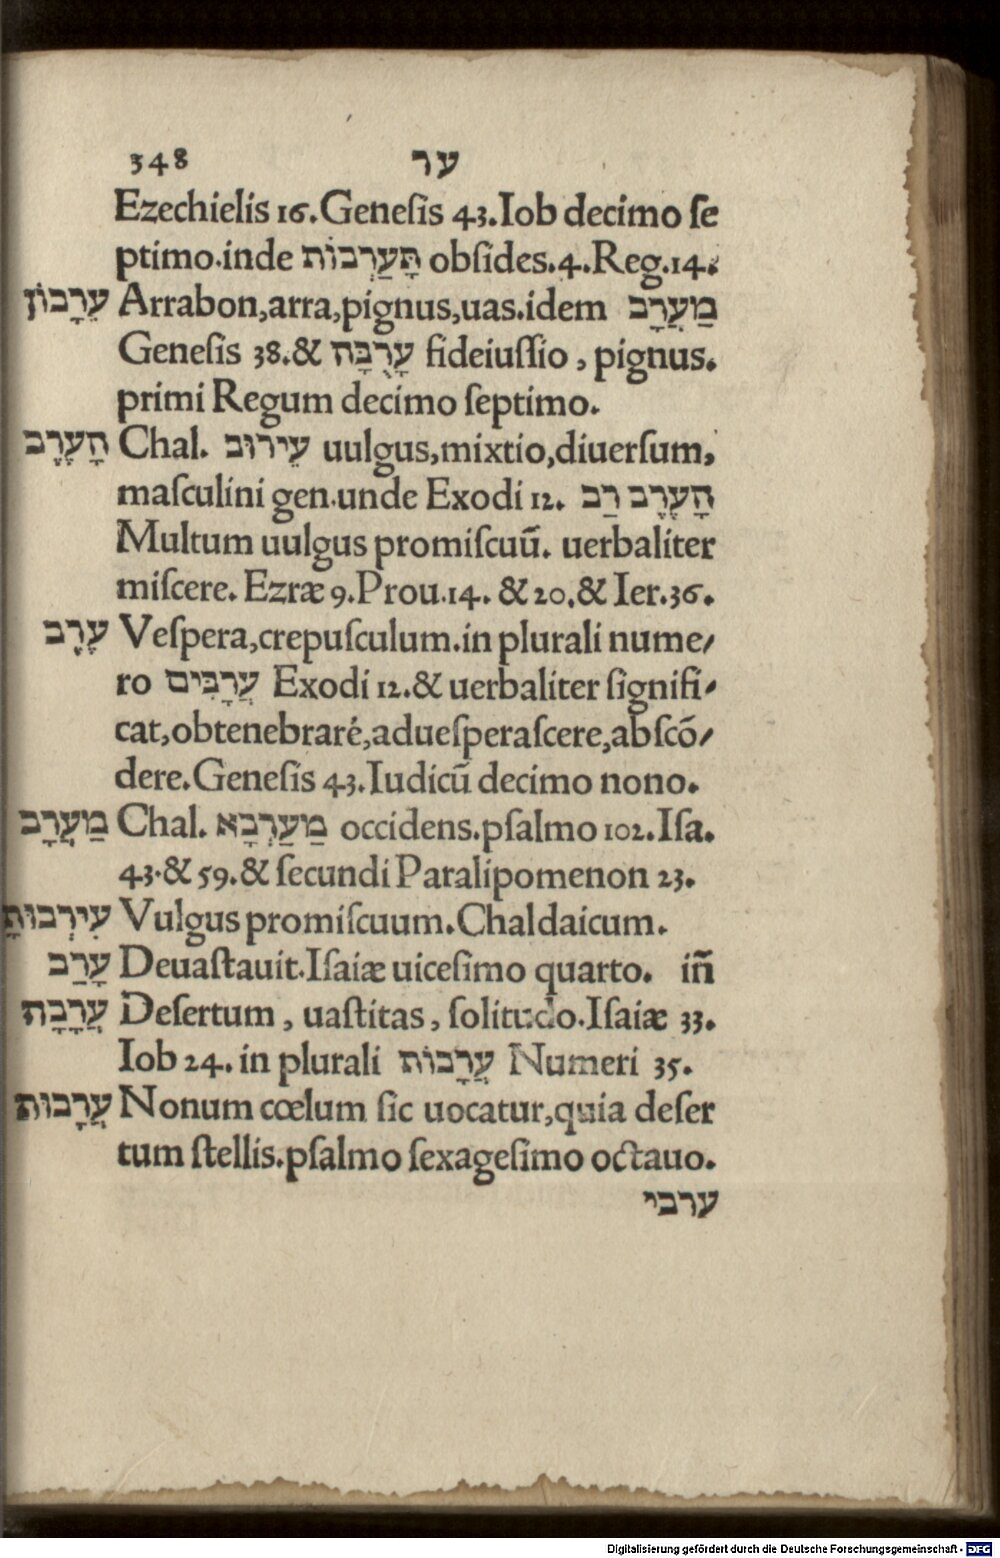 348 ער
Ezechielis 16. Geneſis 43. Iob decimo ſe
ptimo. inde תָּעַרְבוֹת obſides. 4. Reg. 14.
עֵרָבוֹן Arrabon, arra, pignus, uas. idem מַעֲרָב
Geneſis 38. & עָרֻבָּה fideiuſſio, pignus.
primi Regum decimo ſeptimo.
הָעֶרֶב Chal. עֵירוּב uulgus, mixtio, diuerſum,
maſculini gen. unde Exodi 12. הָעֶרֶב רַב
Multum uulgus promiſcuũ. uerbaliter
miſcere. Ezræ 9. Prou. 14. & 20. & Ier. 36.
עֶרֶב Veſpera, crepuſculum. in plurali nume/
ro עֲרָבִּים Exodi 12. & uerbaliter ſignifi/
cat, obtenebraré, adueſperaſcere, abſcõ/
dere. Geneſis 43. Iudicũ decimo nono.
מַעֲרָב Chal. מַעַרְבָא occidens. pſalmo 102. Iſa.
43. & 59. & ſecundi Paralipomenon 23.
עִירְבוּתָ Vulgus promiſcuum. Chaldaicum.
עָרַב Deuaſtauit. Iſaiæ uiceſimo quarto. iñ
עֲרָבָה Deſertum, uaſtitas, ſolitudo. Iſaiæ 33.
Iob 24. in plurali עֲרָבוֹת Numeri 35.
עֲרָבוּת Nonum cœlum ſic uocatur, quia deſer
tum ſtellis. pſalmo ſexageſimo octauo.
ערבי
Digitalisierung gefördert durch die Deutsche Forschungsgemeinschaft - DFG